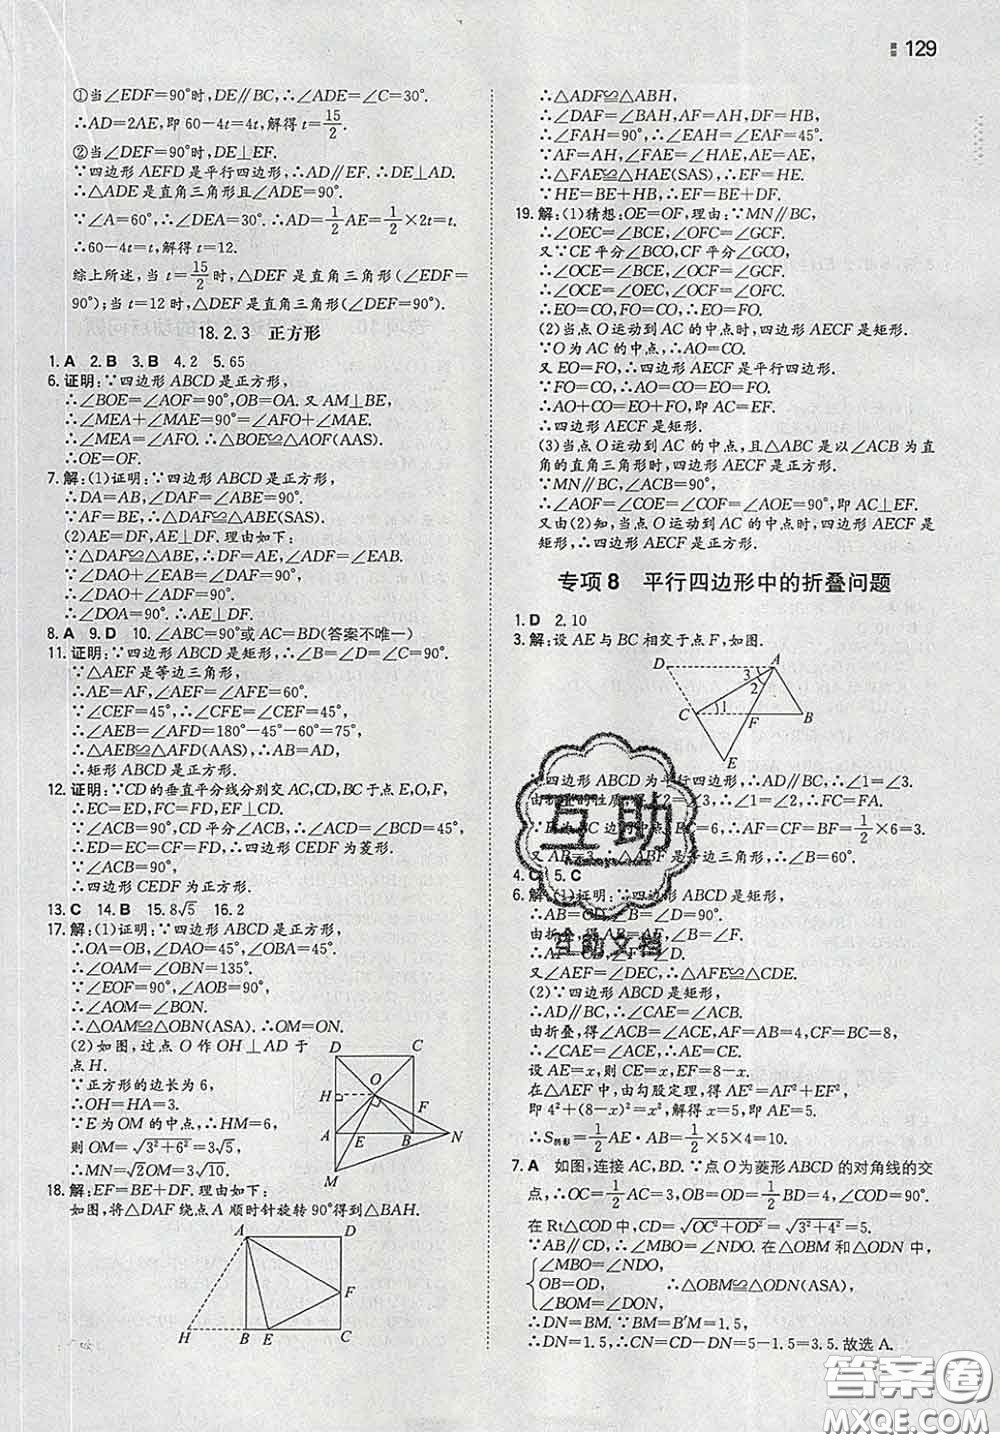 129
①当∠EDF=90°时,DE∥BC,∴∠ADE=∠C=30°.
∴AD=2AE,即60-4t=4t,解得t=15/2.
②当∠DEF=90°时,DE⊥EF.
∵四边形AEFD是平行四边形,∴AD∥EF.∴DE⊥AD.
∴△ADE是直角三角形且∠ADE=90°.
∵∠A=60°,∴∠DEA=30°.∴AD=1/2AE=1/2×2t=t.
∴60-4t=t,解得t=12.
综上所述,当t=15/2时,△DEF是直角三角形(∠EDF=
90°);当t=12时,△DEF是直角三角形(∠DEF=90°).
18.2.3 正方形
1.A 2.B 3.B 4.2 5.65
6.证明:∵四边形ABCD是正方形,
∴∠BOE=∠AOF=90°,OB=OA.又AM⊥BE,
∴∠MEA+∠MAE=90°=∠AFO+∠MAE.
∴∠MEA=∠AFO.∴△BOE≌△AOF(AAS).
∴OE=OF.
7.解:(1)证明:∵四边形ABCD是正方形,
∴DA=AB,∠DAF=∠ABE=90°.
∵AF=BE,∴△DAF≌△ABE(SAS).
(2)AE=DF,AE⊥DF.理由如下:
∵△DAF≌△ABE,∴DF=AE,∠ADF=∠EAB.
∵∠DAO+∠EAB=∠DAF=90°,
∴∠DAO+∠ADF=90°.
∴∠DOA=90°.∴AE⊥DF.
8.A 9.D 10.∠ABC=90°或AC=BD(答案不唯一)
11.证明:∵四边形ABCD是矩形,∴∠B=∠D=∠C=90°.
∵△AEF是等边三角形,
∴AE=AF,∠AEF=∠AFE=60°.
∵∠CEF=45°,∴∠CFE=∠CEF=45°,
∴∠AEB=∠AFD=180°-45°-60°=75°,
∴△AEB≌△AFD(AAS),∴AB=AD,
∴矩形ABCD是正方形.
12.证明:∵CD的垂直平分线分别交AC,CD,BC于点E,O,F,
∴EC=ED,FC=FD,EF⊥CD.
∵∠ACB=90°,CD平分∠ACB,∴∠ACD=∠BCD=45°,
∴ED=EC=CF=FD.∴四边形CEDF为菱形.
∵∠ACB=90°,
∴四边形CEDF为正方形.
13.C 14.B 15.8√5 16.2
17.解:(1)证明:∵四边形ABCD是正方形,
∴OA=OB,∠DAO=45°,∠OBA=45°.
∴∠OAM=∠OBN=135°.
∵∠EOF=90°,∠AOB=90°,
∴∠AOM=∠BON.
∴△OAM≌△OBN(ASA).∴OM=ON.
(2)如图,过点O作OH⊥AD于
点H.
∵正方形的边长为6,
∴OH=HA=3.
∵E为OM的中点,∴HM=6,
则OM=√(3²+6²)=3√5,
∴MN=√2OM=3√10.
D C
H O
F
A E B N
M
18.解:EF=BE+DF.理由如下:
如图,将△DAF绕点A顺时针旋转90°得到△BAH.
A D
F
H B E C
∴△ADF≌△ABH,
∴∠DAF=∠BAH,AF=AH,DF=HB,
∴∠FAH=90°,∴∠EAH=∠EAF=45°.
∵AF=AH,∠FAE=∠HAE,AE=AE,
∴△FAE≌△HAE(SAS),∴EF=HE.
∵HE=BE+HB,∴EF=BE+DF.
19.解:(1)猜想:OE=OF,理由:∵MN∥BC,
∴∠OEC=∠BCE,∠OFC=∠GCF.
又∵CE平分∠BCO,CF平分∠GCO,
∴∠OCE=∠BCE,∠OCF=∠GCF.
∴∠OCE=∠OEC,∠OCF=∠OFC.
∴EO=CO,FO=CO,∴EO=FO.
(2)当点O运动到AC的中点时,四边形AECF是矩形.
∵O为AC的中点,∴AO=CO.
又EO=FO,∴四边形AECF是平行四边形.
∵FO=CO,∴AO=CO=EO=FO.
∴AO+CO=EO+FO,即AC=EF,
∴四边形AECF是矩形.
(3)当点O运动到AC的中点,且△ABC是以∠ACB为直
角的直角三角形时,四边形AECF是正方形.
∵MN∥BC,∠ACB=90°,
∴∠AOF=∠COE=∠COF=∠AOE=90°,即AC⊥EF.
又由(2)知,当点O运动到AC的中点时,四边形AECF是
矩形,∴四边形AECF是正方形.
专项8 平行四边形中的折叠问题
1.D 2.10
3.解:设AE与BC相交于点F,如图.
D A
3
2
C 1 F B
E
∵四边形ABCD为平行四边形,∴AD∥BC,∴∠1=∠3.
∴AF=CF=BF=1/2×6=3.
又AB=3,∴△ABF是等边三角形,∴∠B=60°.
4.C 5.C
6.解:(1)证明:∵四边形ABCD是矩形,
∴AB=CD,∠B=∠D=90°.
由折叠,得AB=AF,∠B=∠F.
又∠AEF=∠DEC,∴△AFE≌△CDE.
(2)∵四边形ABCD是矩形,
∴AD∥BC,∴∠CAE=∠ACB.
由折叠,得∠ACB=∠ACE,AF=AB=4,CF=BC=8,
∴∠CAE=∠ACE,∴AE=CE.
设AE=x,则CE=x,EF=8-x.
在△AEF中,由勾股定理,得AE²=AF²+EF²,
即4²+(8-x)²=x²,解得x=5,则AE=5,
∴S阴影=1/2AE·AB=1/2×5×4=10.
7.A 如图,连接AC,BD.∵点O为菱形ABCD的对角线的交
点,∴OC=1/2AC=3,OB=OD=1/2BD=4,∠COD=90°.
在Rt△COD中,CD=√(OC²+OD²)=√(3²+4²)=5.
∵AB∥CD,∴∠MBO=∠NDO.在△OBM和△ODN中,
∠MBO=∠NDO,
OB=OD, ∴△OBM≌△ODN(ASA),
∠BOM=∠DON,
∴DN=BM.∵BM=B'M=1.5,
∴DN=1.5,∴CN=CD-DN=5-1.5=3.5.故选A.
互助
互助文档
答案圈
MXQE.COM